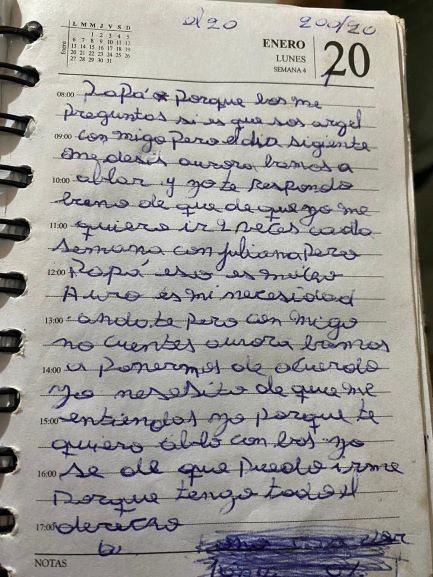 d20 20d/20
L M M J V S D
1 2 3 4 5
6 7 8 9 10 11 12
13 14 15 16 17 18 19
20 21 22 23 24 25 26
27 28 29 30 31
Enero
ENERO
LUNES
SEMANA 4
20
08:00 Papá porque bos me
preguntos si es que sos argel
09:00 con migo pero el dia sigiente
me desis aurora bamos a
10:00 ablar y yo te respondo
bueno de que de que yo me
11:00 quiero ir 2 veces cada
semana con juliana pero
12:00 Papá eso es
Auro es mi necesidad
13:00 andote pero con migo
no cuentes aurora bamos
14:00 a ponernos de acuerdo
yo nesesito de que me
15:00 entiendas yo porque te
quiero ablo con bos yo
16:00 se de que puedo irme
porque tengo todo el
17:00 derecho
NOTAS